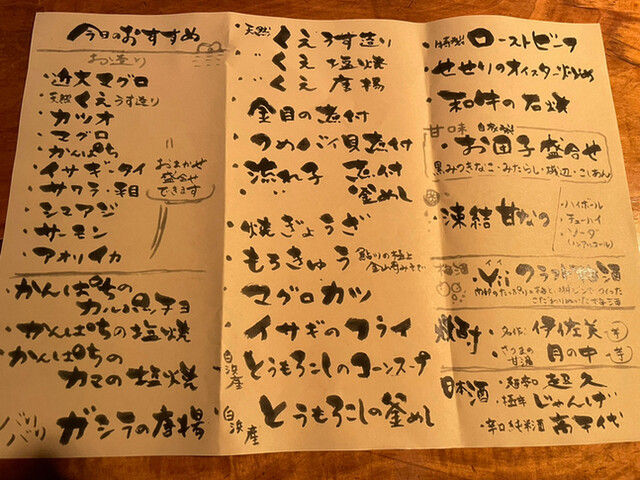 今日のおすすめ
お造り
・近大マグロ
・天然くえうす造り
・カツオ
・マグロ
・かんぱち
・イサギ・タイ
・サワラ・
・シマアジ
・サーモン
・アオリイカ
おまかせ
盛合せ
できます
・かんぱちの
カルパッチョ
・かんぱちの塩焼
・かんぱちの
カマの塩焼
バリバリ
ガシラの唐揚
・天然くえうす造り
・〃くえ塩焼
・〃くえ唐揚
・金目の煮付
・つめバイ貝煮付
・流れ子 煮付
・〃 釜めし
・焼ぎょうざ
・もろきゅう
・マグロカツ
・イサギのフライ
白浜産
とうもろこしのコーンスープ
白浜産
とうもろこしの釜めし
ローストビーフ
・せせりのオイスター炒め
・和牛の石焼
甘味
自家製
・お団子盛合せ
黒みつきなこ・みたらし・磯辺・こしあん
・凍結甘なつ
・ハイボール
・チューハイ
・ソーダ
(ノンアルコール)
梅酒
・Yii クラフト梅酒
こだわりぬいた梅酒
焼酎
・伊佐美 芋
・さつまの
甘酒
月の中 芋
日本酒
・超久
・じゃんげ
・辛口純米酒 高千代